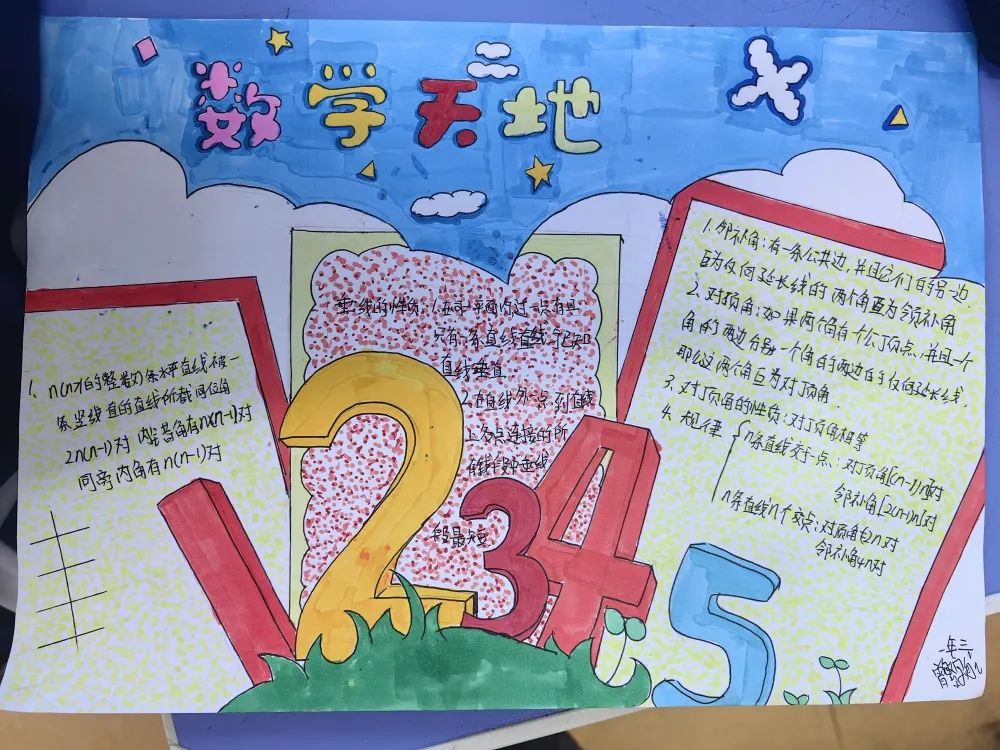 数学天地
1. n(n>1的整数)条水平直线被一
条竖线直的直线所截同位角
2n(n-1)对 内错角有n(n-1)对
同旁内角有n(n-1)对
垂线的性质:1.在同一平面内过一点有且
只有一条直线直线与已知
直线垂直
2.在直线外一点到直线
上各点连接的所
有线段中垂线
段最短
2
3
4
5
1. 邻补角:有一条公共边,并且它们的另一边
互为反向延长线的两个角互为邻补角
2. 对顶角:如果两个角有一个公顶点,并且一个
角的两边分别一个角的两边的反向延长线,
那么这两个角互为对顶角.
3. 对顶角的性质:对顶角相等
4. 规律 { n条直线交于一点:对顶角[(n-1)n]对
邻补角[2(n-1)n]对
n条直线n个交点:对顶角2n对
邻补角4n对
一年三